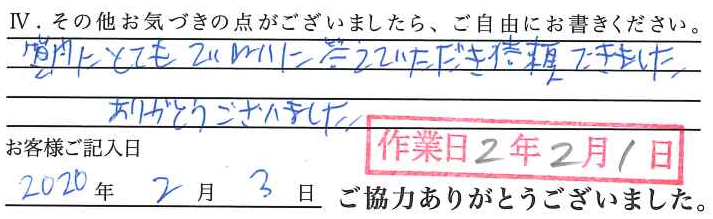 Ⅳ.その他お気づきの点がございましたら、ご自由にお書きください。
質問にとてもていねいに答えていただき信頼できました。
ありがとうございました。
お客様ご記入日
作業日2年2月1日
2020年2月3日 ご協力ありがとうございました。